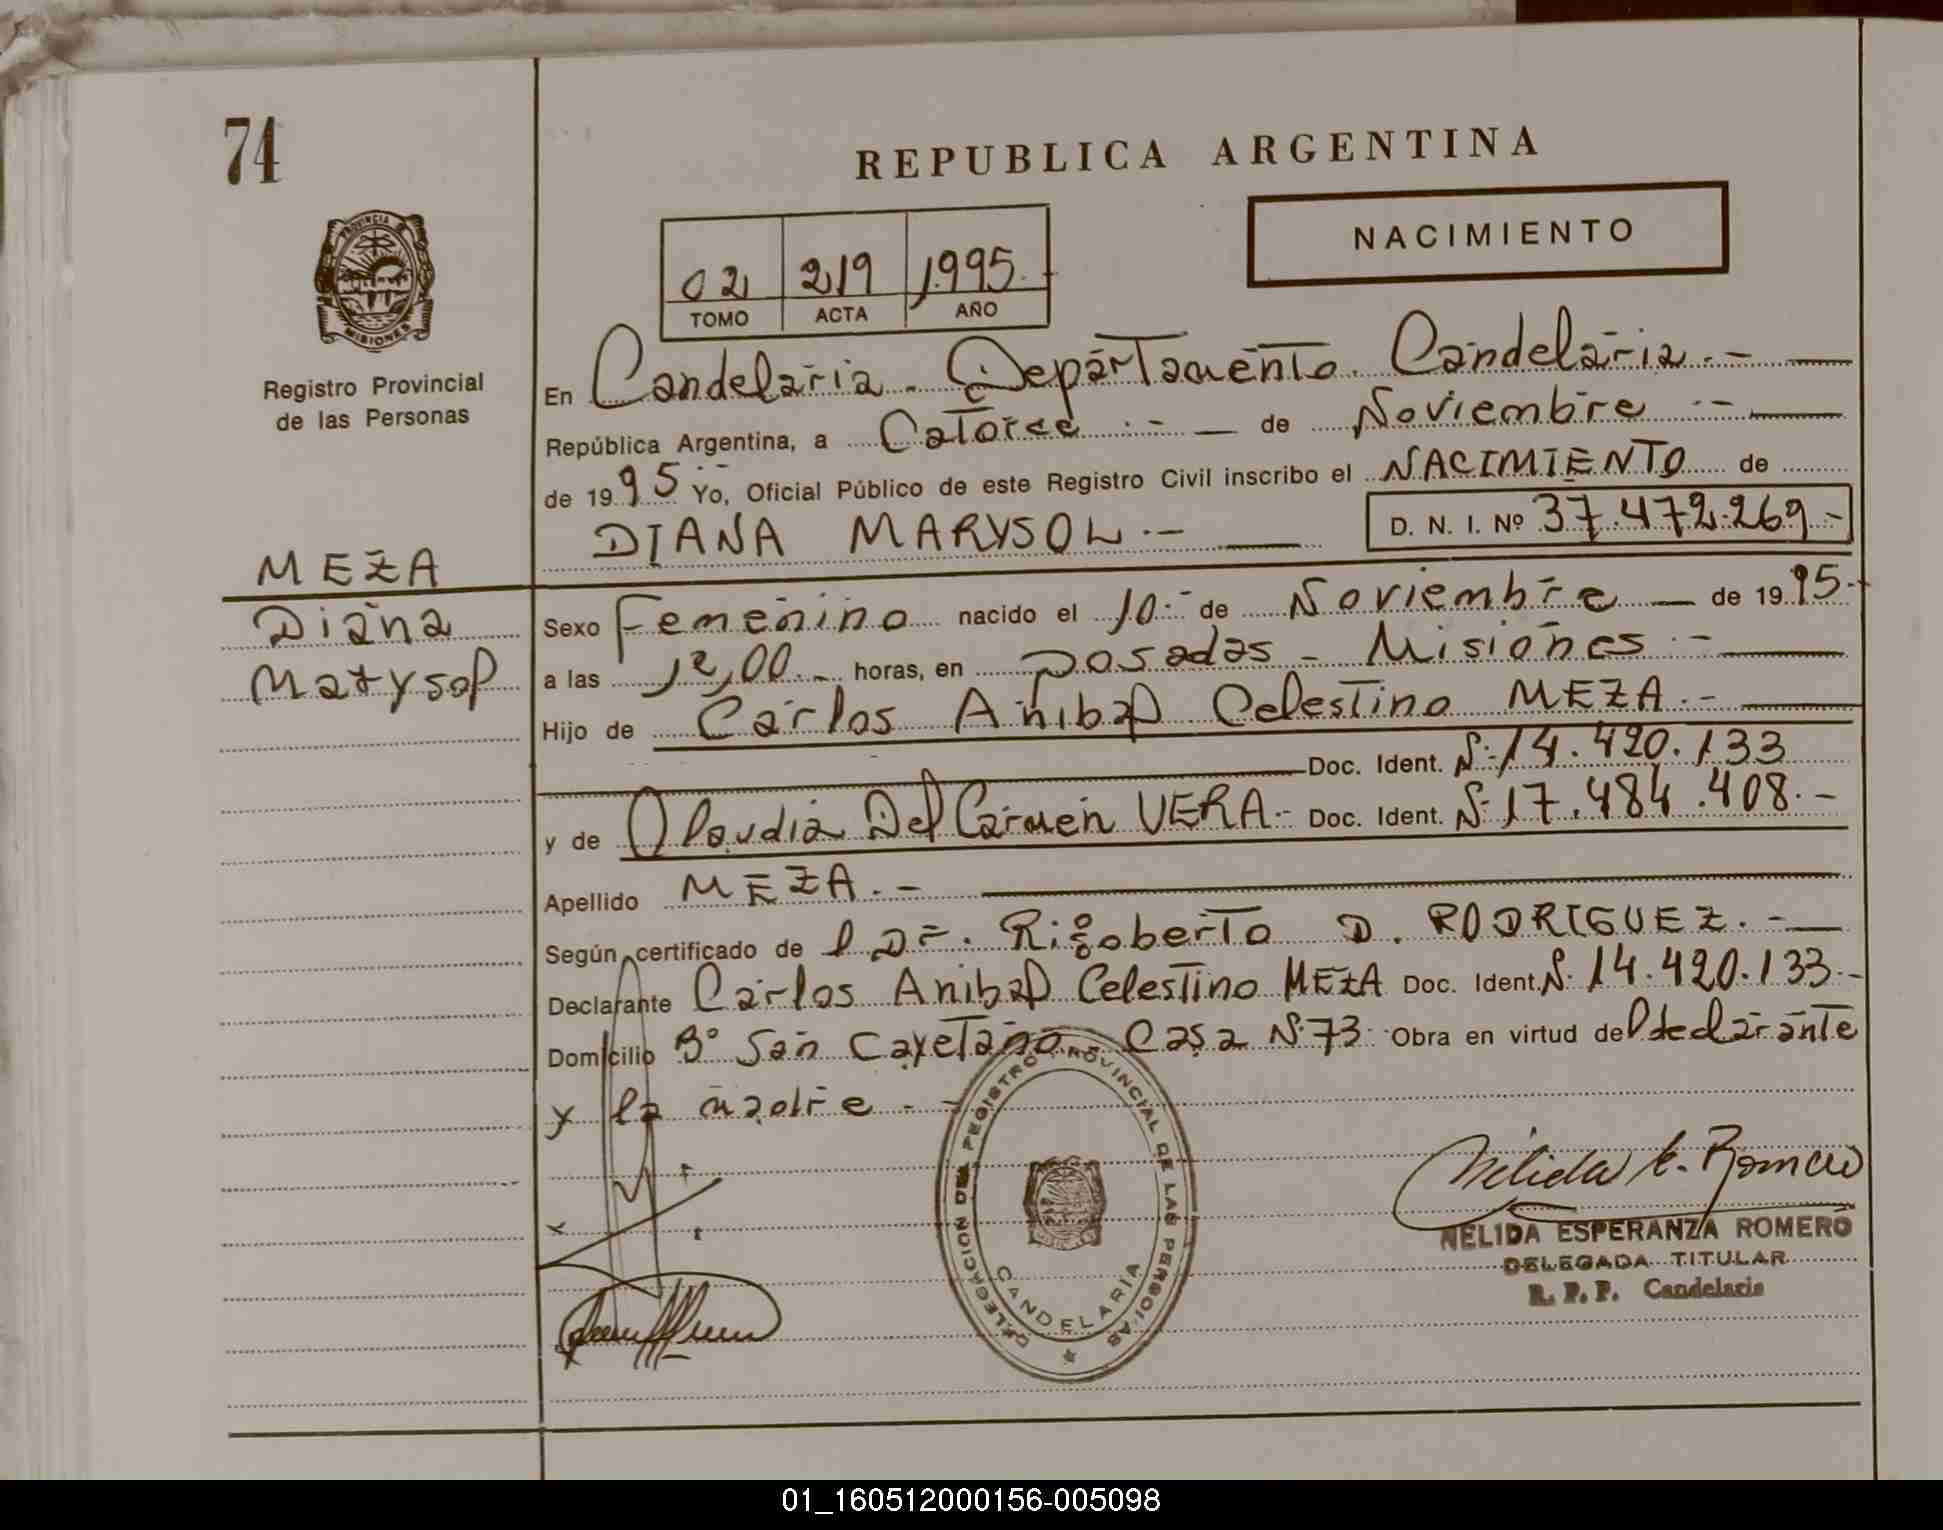 74
REPUBLICA ARGENTINA
NACIMIENTO
02 219 1995.
TOMO ACTA AÑO
PROVINCIA
MISIONES
Registro Provincial
de las Personas
En Candelaria. Departamento Candelaria.-
República Argentina, a Catorce .- de Noviembre .-
de 1995 Yo, Oficial Público de este Registro Civil inscribo el NACIMIENTO de
DIANA MARYSOL.- D. N. I. Nº 37.472.269.-
MEZA
Diana
Marysol
Sexo Femenino nacido el 10.- de Noviembre de 1995.
a las 12,00.- horas, en Posadas - Misiones .-
Hijo de Carlos Anibal Celestino MEZA.-
Doc. Ident. N: 14.420.133
y de Claudia Del Carmen VERA.- Doc. Ident. N: 17.484.408.-
Apellido MEZA.-
Según certificado de l Dr. Rigoberto D. RODRIGUEZ.-
Declarante Carlos Anibal Celestino MEZA Doc. Ident. N: 14.420.133.-
Domicilio Bº San Cayetano Casa N: 73 Obra en virtud del declarante
y la madre.-
DELEGACION DEL REGISTRO PROVINCIAL DE LAS PERSONAS
CANDELARIA
Nélida E. Romero
NELIDA ESPERANZA ROMERO
DELEGADA TITULAR
R. P. P. Candelaria
01_160512000156-005098